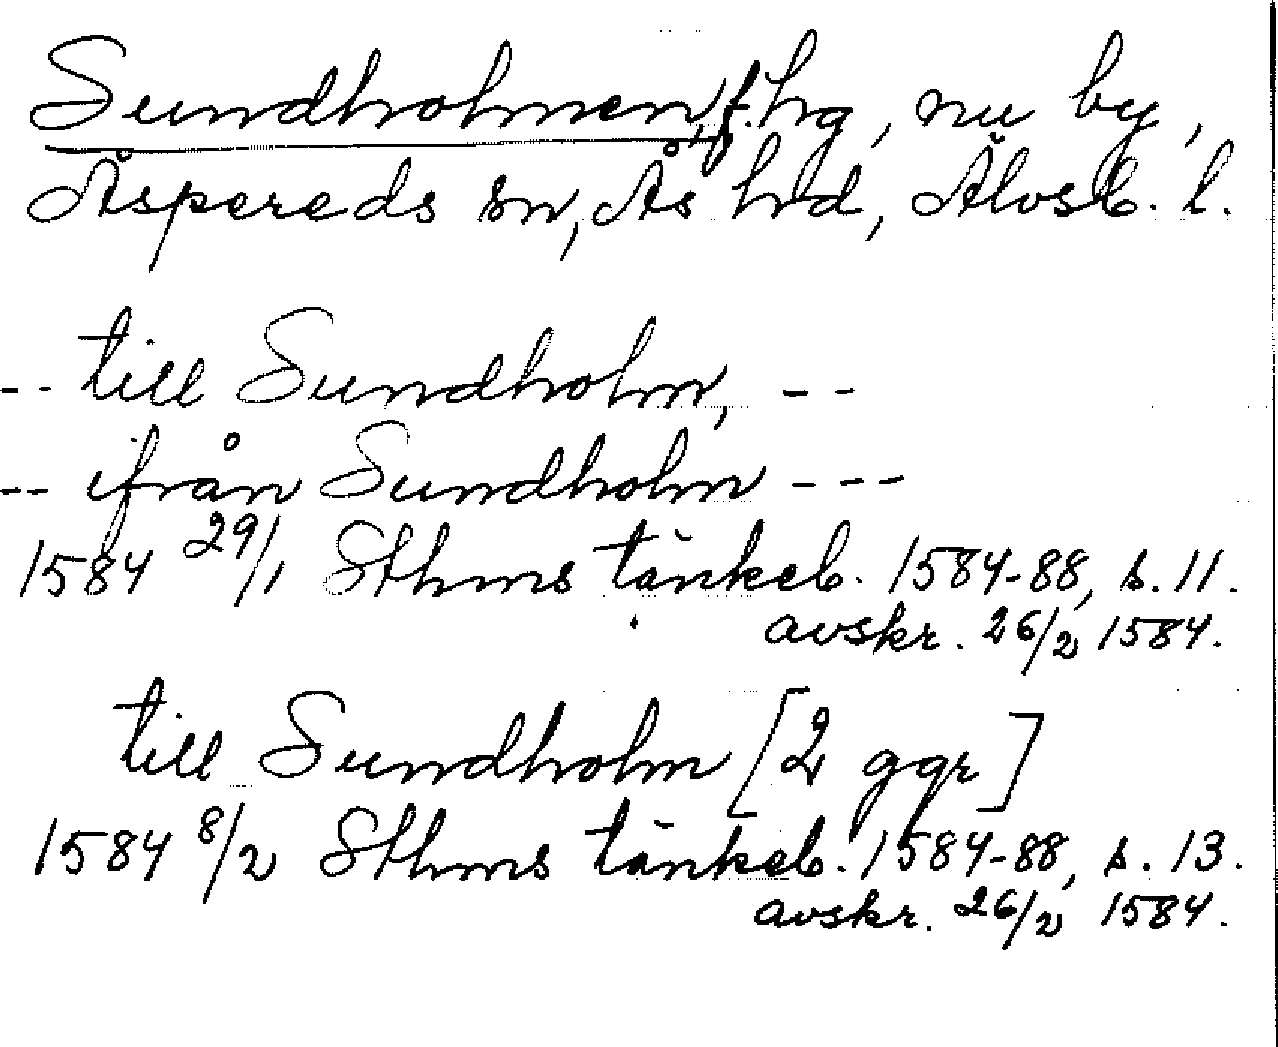 Sundholmen, f. hg, nu by,
Äspereds sn, Ås hrd, Älvsb. l.
-- till Sundholm, --
-- ifrån Sundholm ---
1584 29/1 Sthms tänkeb. 1584-88, s. 11.
avskr. 26/2 1584.
till Sundholm [2 ggr]
1584 8/2 Sthms tänkeb. 1584-88, s. 13.
avskr. 26/2 1584.